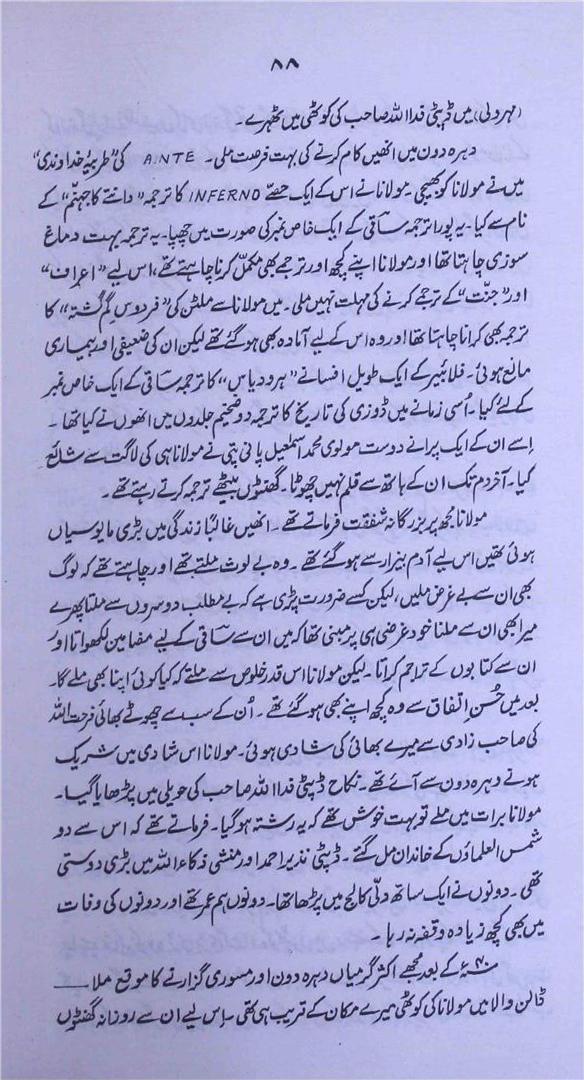 ۸۸
(مہرولی) میں ڈپٹی فدا اللہ صاحب کی کوٹھی میں ٹھہرے
دہرہ دون میں انھیں کام کرنے کی بہت فرصت ملی۔ ANTE کی "طربیۂ خداوندی"
میں نے مولانا کو بھیجی۔ مولانا نے اس کے ایک حصے INFERNO کا ترجمہ "دانتے کا جہنّم" کے
نام سے کیا۔ یہ پورا ترجمہ ساقی کے ایک خاص نمبر کی صورت میں چھپا۔ یہ ترجمہ بہت دماغ
سوزی چاہتا تھا اور مولانا اپنے کچھ اور ترجمے بھی مکمل کرنا چاہتے تھے، اس لیے "اعراف"
اور "جنّت" کے ترجمے کرنے کی مہلت نہیں ملی۔ میں مولانا سے ملٹن کی "فردوسِ گم گشتہ" کا
ترجمہ بھی کرانا چاہتا تھا اور وہ اس کے لیے آمادہ بھی ہو گئے تھے لیکن ان کی ضعیفی اور بیماری
مانع ہوئی۔ فلائبیر کے ایک طویل افسانے "ہرودیاس" کا ترجمہ ساقی کے ایک خاص نمبر
کے لئے کیا۔ اُسی زمانے میں ڈوزی کی تاریخ کا ترجمہ دو ضخیم جلدوں میں انھوں نے کیا تھا۔
اِسے ان کے ایک پرانے دوست مولوی محمد اسمٰعیل پانی پتی نے مولانا ہی کی لاگت سے شائع
کیا۔ آخر دم تک ان کے ہاتھ سے قلم نہیں چھوٹا۔ گھنٹوں بیٹھے ترجمہ کرتے رہتے تھے۔
مولانا مجھ پر بزرگانہ شفقت فرماتے تھے۔ انھیں غالباً زندگی میں بڑی مایوسیاں
ہوئی تھیں اس لیے آدم بیزار سے ہو گئے تھے۔ وہ بے لوث ملتے تھے اور چاہتے تھے کہ لوگ
بھی ان سے بے غرض ملیں، لیکن کسے ضرورت پڑی ہے کہ بے مطلب دوسروں سے ملتا پھرے
میرا بھی ان سے ملنا خود غرضی ہی پر مبنی تھا کہ میں ان سے ساقی کے لیے مضامین لکھواتا اور
ان سے کتابوں کے تراجم کراتا۔ لیکن مولانا اس قدر خلوص سے ملتے کہ کیا کوئی اپنا بھی ملے گا۔
بعد میں حُسنِ اتفاق سے وہ کچھ اپنے بھی ہو گئے تھے۔ اُن کے سب سے چھوٹے بھائی فرحت اللہ
کی صاحب زادی سے میرے بھائی کی شادی ہوئی۔ مولانا اس شادی میں شریک
ہونے دہرہ دون سے آئے تھے۔ نکاح ڈپٹی فدا اللہ صاحب کی حویلی میں پڑھایا گیا۔
مولانا برات میں ملے تو بہت خوش تھے کہ یہ رشتہ ہو گیا۔ فرماتے تھے کہ اس سے دو
شمس العلماؤں کے خاندان مل گئے۔ ڈپٹی نذیر احمد اور منشی ذکاء اللہ میں بڑی دوستی
تھی۔ دونوں نے ایک ساتھ دلّی کالج میں پڑھا تھا۔ دونوں ہم عمر تھے اور دونوں کی وفات
میں بھی کچھ زیادہ وقفہ نہ رہا۔
۴۰ء کے بعد مجھے اکثر گرمیاں دہرہ دون اور مسوری گزارنے کا موقع ملا ــــ
ڈالن والا میں مولانا کی کوٹھی میرے مکان کے قریب ہی تھی۔ اِس لیے ان سے روزانہ گھنٹوں